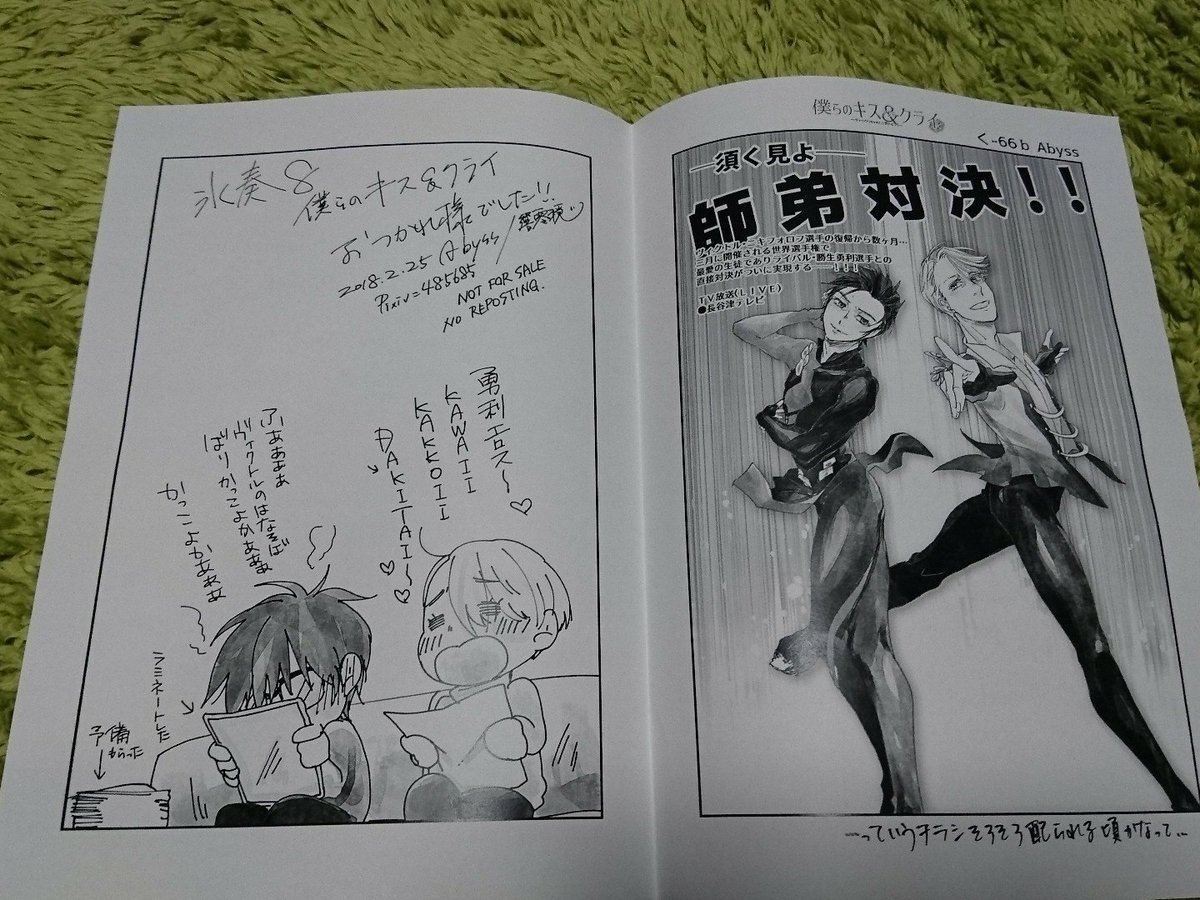 僕らのキス&クライ
く-66b Abyss
―須く見よ――
師弟対決!!
ヴィクトル・ニキフォロフ選手の復帰から数ヶ月…
三月に開催される世界選手権で
最愛の生徒でありライバル・勝生勇利選手との
直接対決がついに実現する――!!!
TV放送(LIVE)
●長谷津テレビ
―っていうチラシそろそろ配られる頃かなって…
氷奏8
僕らのキス&クライ
おつかれ様でした!!
2018.2.25 Abyss/
Pixiv=485685
NOT FOR SALE
NO REPOSTING.
勇利エロス〜♡
KAWAII
KAKKOII
DAKITAI〜♡♡
ふあぁぁぁ
ヴィクトルのはなそば
ばりかっこよかあああ
かっこよかああぁ
ラミネートした
予備
もらった